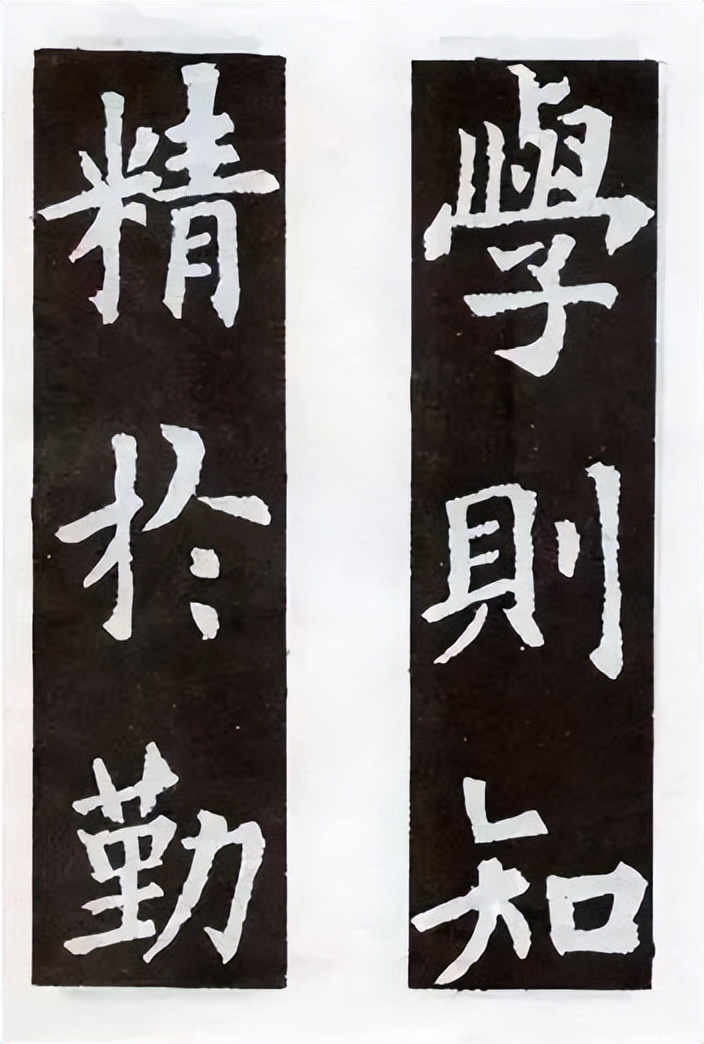 學則知
精於勤